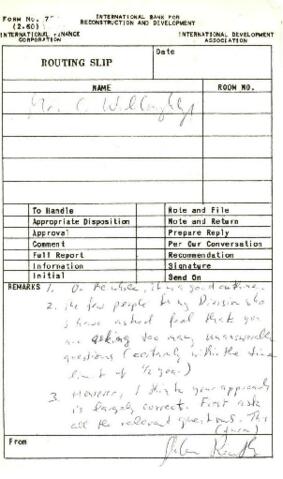 FORM No. 7
(2-60)
INTERNATIONAL BANK FOR
RECONSTRUCTION AND DEVELOPMENT
INTERNATIONAL FINANCE
CORPORATION
INTERNATIONAL DEVELOPMENT
ASSOCIATION
ROUTING SLIP
Date
NAME
ROOM NO.
Mr. C. Willoughby
To Handle
Note and File
Appropriate Disposition
Note and Return
Approval
Prepare Reply
Comment
Per Our Conversation
Full Report
Recommendation
Information
Signature
Initial
Send On
REMARKS
1. On the whole, it is a good outline.
2. The few people in my Division who
I have asked feel that you
are asking too many unanswerable
questions (certainly within the time
limit of ½ year)
3. However, I think your approach
is largely correct. First ask
all the relevant questions.
(over)
From